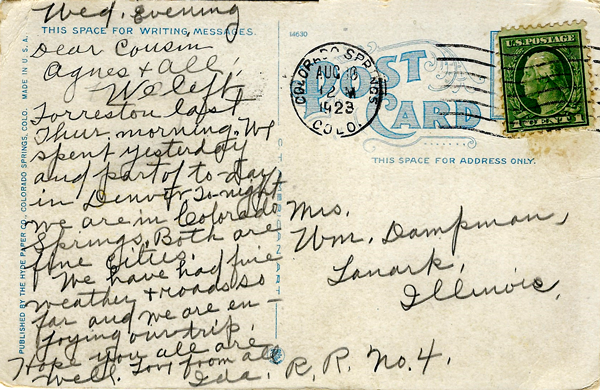 Wed. evening
THIS SPACE FOR WRITING MESSAGES.
Dear Cousin
Agnes & all,
We left
Forreston last
Thur. morning. We
spent yesterday
and part of to-day
in Denver. To-night
we are in Colorado
Springs. Both are
fine cities.
We have had fine
weather & roads so
far and we are en-
joying our trip.
Hope you all are
well. Love from all
Ida.
PUBLISHED BY THE HYDE PAPER CO., COLORADO SPRINGS, COLO. MADE IN U.S.A.
14630
POST CARD
THIS SPACE FOR ADDRESS ONLY.
COLORADO SPRINGS
AUG
12 M
1923
COLO.
U.S. POSTAGE
CENT
Mrs.
Wm. Dampman,
Lanark,
Illinois,
R. R. No. 4.